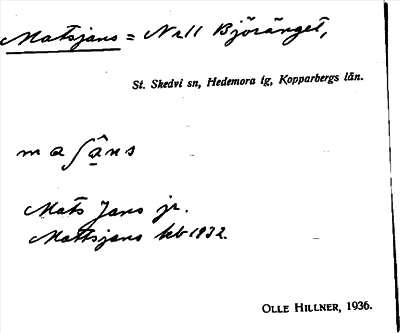 Matsjans = N:r 11 Björänget,
St. Skedvi sn, Hedemora tg, Kopparbergs län.
maʃâ̱ns
Mats Jans jr.
Mattsjans kb 1932.
OLLE HILLNER, 1936.